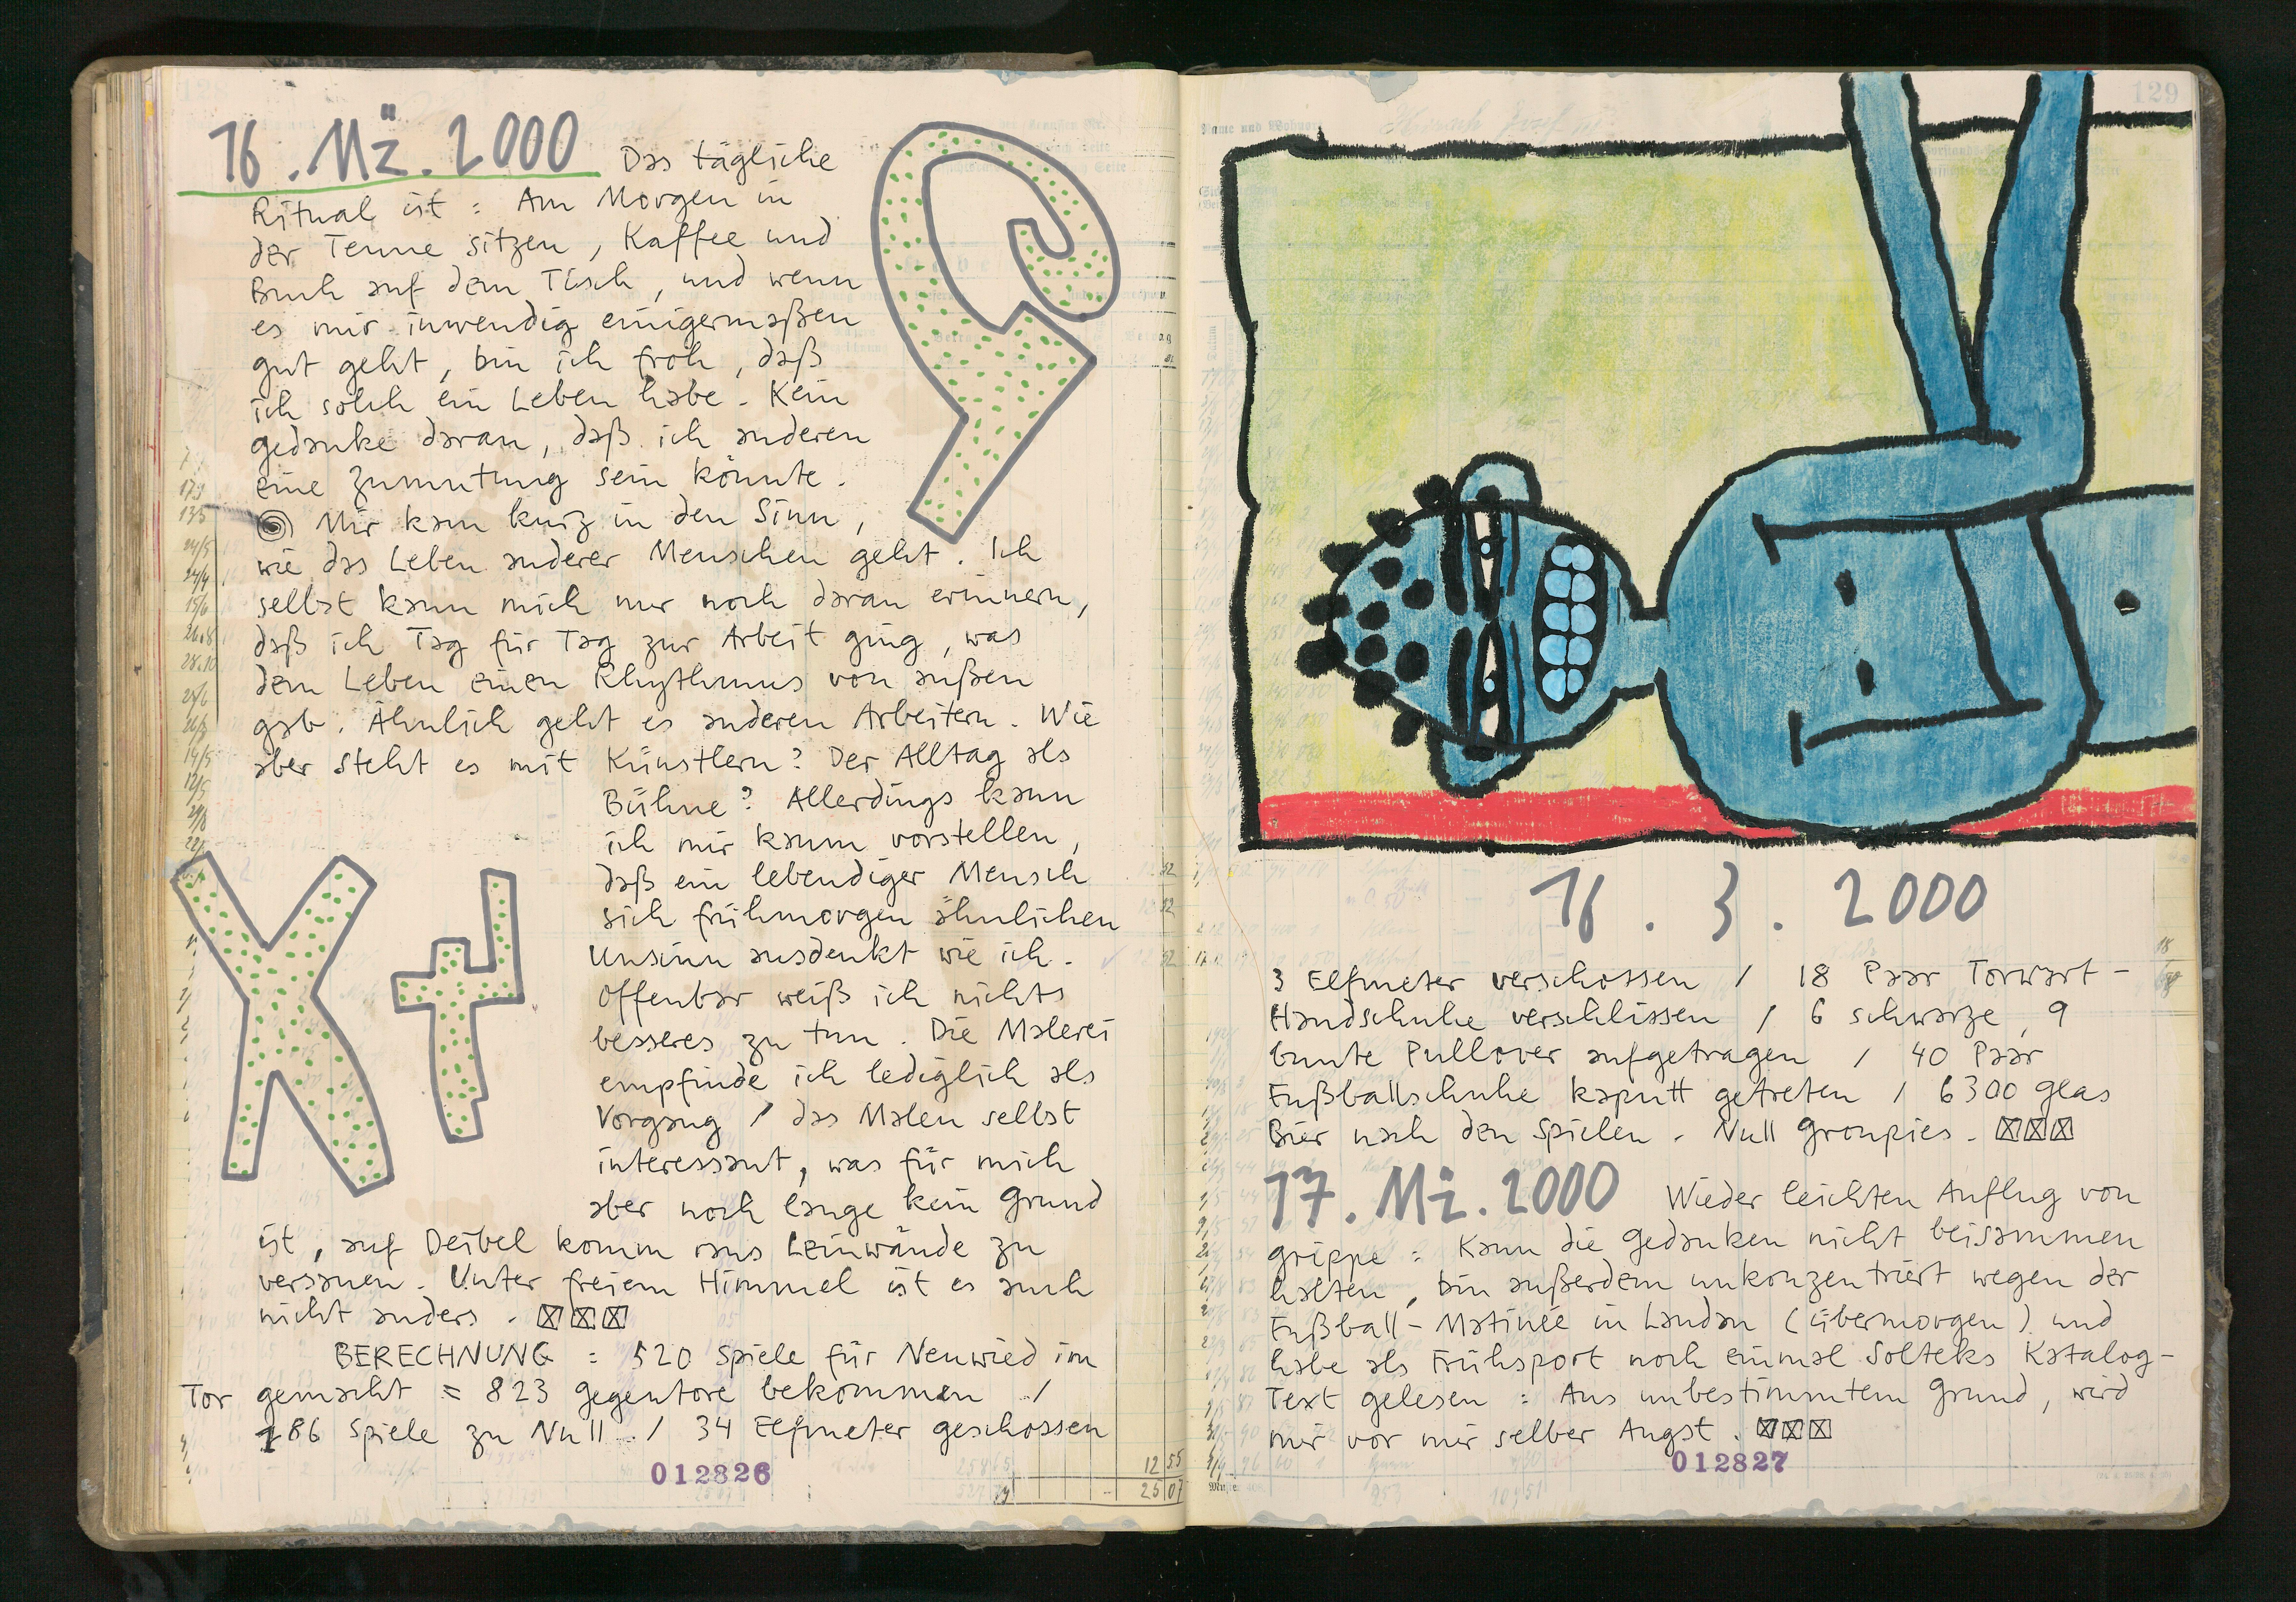 16. Mä. 2000 Das tägliche
Ritual ist : Am Morgen in
der Tenne sitzen, Kaffee und
Buch auf dem Tisch, und wenn
es mir inwendig einigermaßen
gut geht, bin ich froh, daß
ich solch ein Leben habe. Kein
Gedanke daran, daß ich anderen
eine Zumutung sein könnte.
Mir kam kurz in den Sinn,
wie das Leben anderer Menschen geht. Ich
selbst kann mich nur noch daran erinnern,
daß ich Tag für Tag zur Arbeit ging, was
dem Leben einen Rhythmus von außen
gab. Ähnlich geht es anderen Arbeitern. Wie
aber steht es mit Künstlern? Der Alltag als
Bühne? Allerdings kann
ich mir kaum vorstellen,
daß ein lebendiger Mensch
sich frühmorgen ähnlichen
Unsinn ausdenkt wie ich.
Offenbar weiß ich nichts
besseres zu tun. Die Malerei
empfinde ich lediglich als
Vorgang / das Malen selbst
interessant, was für mich
aber noch lange kein Grund
ist, auf Deibel komm raus Leinwände zu
versauen. Unter freiem Himmel ist es auch
nicht anders.
BERECHNUNG : 520 Spiele für Neuwied im
Tor gemacht = 823 Gegentore bekommen /
186 Spiele zu Null / 34 Elfmeter geschossen
012826
129
16. 3. 2000
3 Elfmeter verschossen / 18 Paar Torwart-
Handschuhe verschlissen / 6 schwarze, 9
bunte Pullover aufgetragen / 40 Paar
Fußballschuhe kaputt getreten / 6300 Glas
Bier nach den Spielen. Null Groupies.
17. Mä. 2000 Wieder leichten Anflug von
Grippe : Kann die Gedanken nicht beisammen
halten, bin außerdem unkonzentriert wegen der
Fußball-Matinée in Landau (übermorgen) und
habe als Frühsport noch einmal Solteks Katalog-
Text gelesen : Aus unbestimmtem Grund, wird
mir vor mir selber Angst.
012827